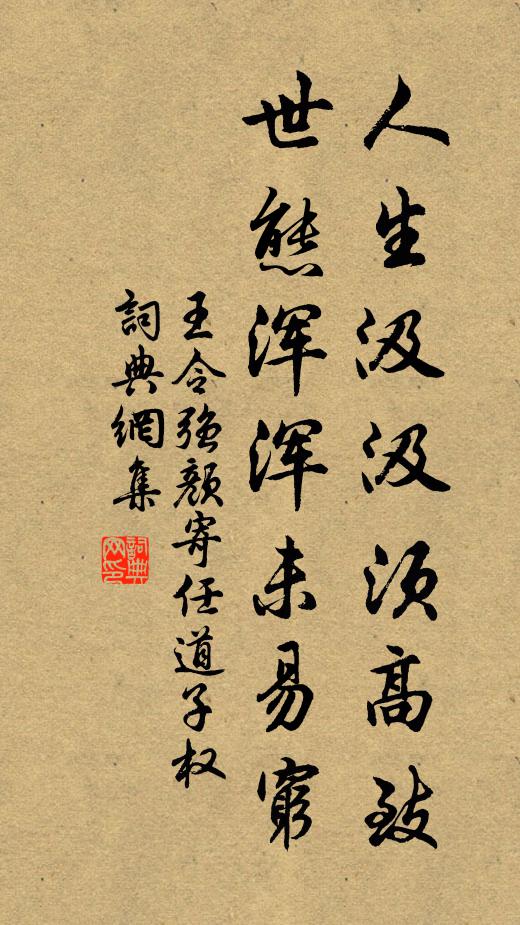 人生汲汲须高致
世態浑浑未易窮
王令强颜寄任道子权
詞典網集
詞典网印